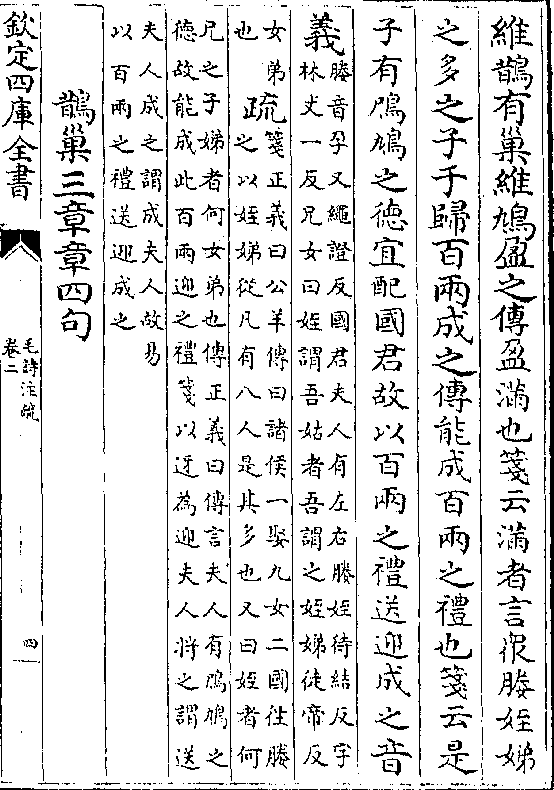 維鵲有巢維鳩盈之傳盈滿也箋云滿者言衆媵姪娣
之多之子于歸百兩成之傳能成百兩之禮也箋云是
子有鳲鳩之德宜配國君故以百兩之禮送迎成之音
義媵音孕又繩證反國君夫人有左右媵姪待結反字
林丈一反兄女曰姪謂吾姑者吾謂之姪娣徒帝反
女弟疏箋正義曰公羊傳曰諸侯一娶九女二國往媵
也之以姪娣從凡有八人是其多也又曰姪者何
兄之子娣者何女弟也傳正義曰傳言夫人有鳲鳩之
德故能成此百兩迎之禮箋以迓為迎夫人將之謂送
夫人成之謂成夫人故易
以百兩之禮送迎成之
鵲巢三章章四句
欽定四庫全書
毛詩注疏
卷二
四